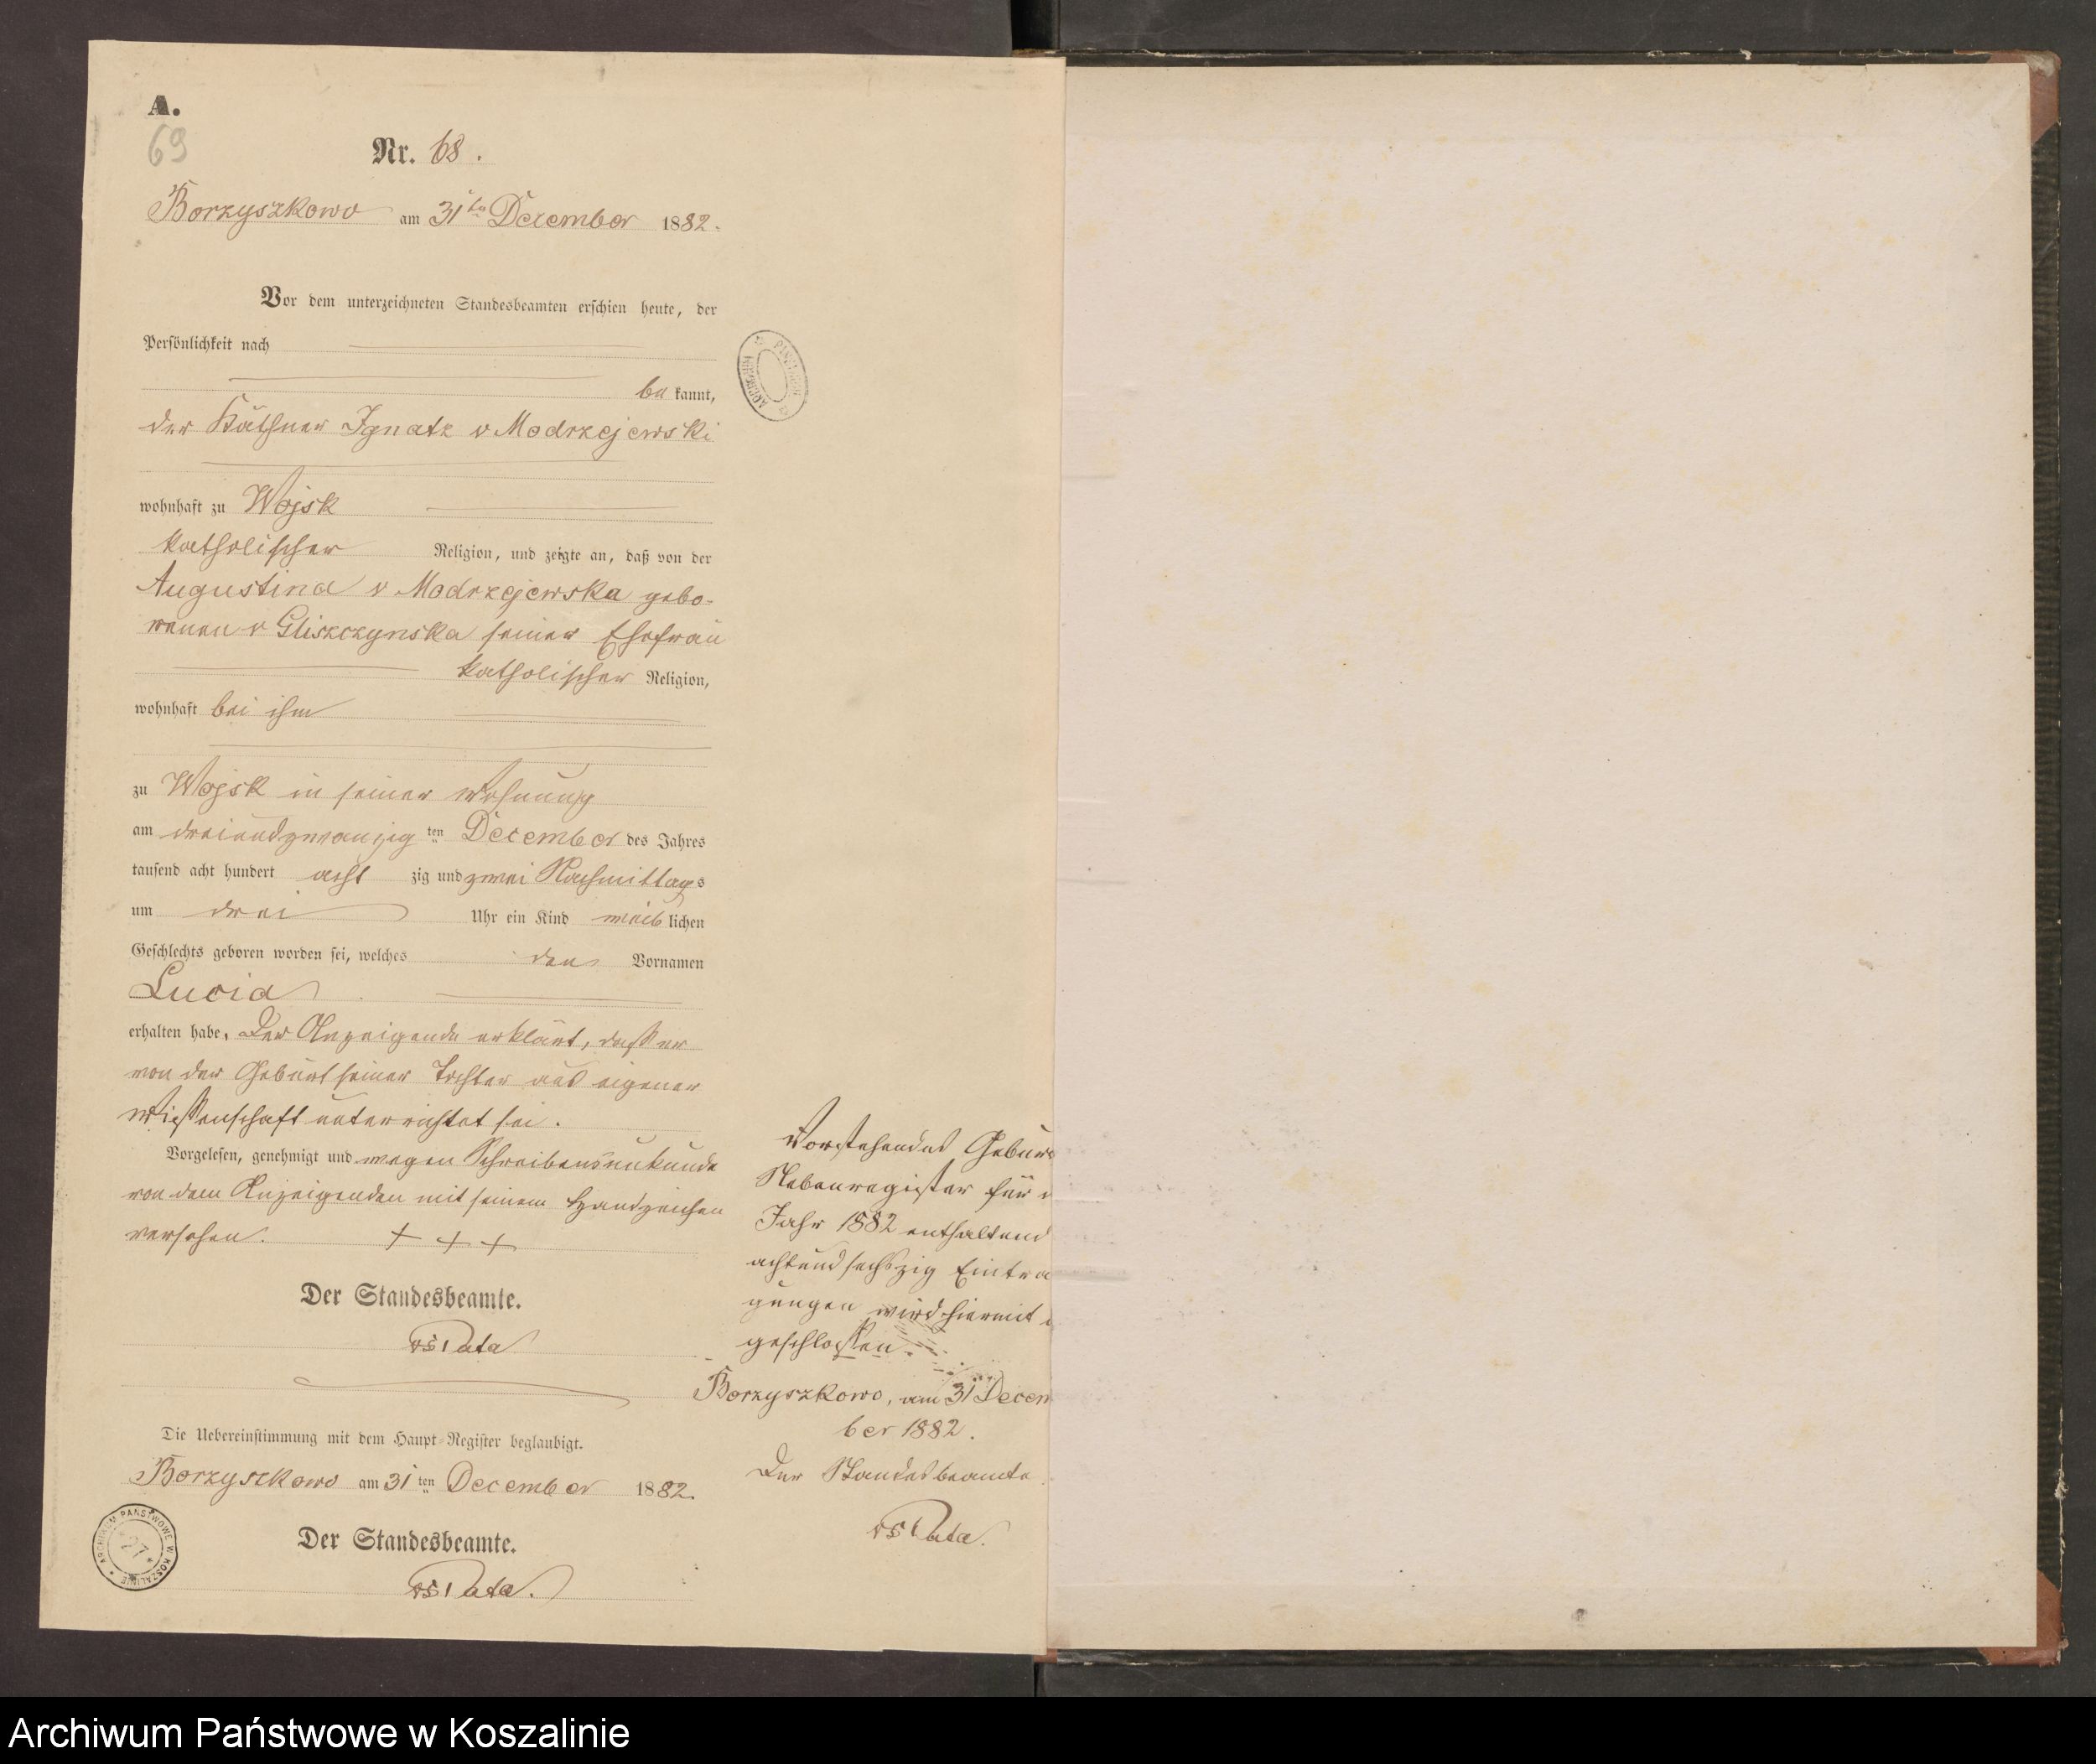 A.
69
Nr. 68.
Borzyszkowo am 31ten December 1882.
Vor dem unterzeichneten Standesbeamten erschien heute, der
Persönlichkeit nach
be kannt,
der Käthner Ignatz v Modrzejewski
wohnhaft zu Wojsk
katholischer Religion, und zeigte an, daß von der
Augustina v Modrzejewska gebo-
renen v Gliszczynska seiner Ehefrau
katholischer Religion,
wohnhaft bei ihm
zu Wojsk in seiner Wohnung
am dreiundzwanzig ten December des Jahres
tausend acht hundert acht zig und zwei Nachmittags
um drei Uhr ein Kind weib lichen
Geschlechts geboren worden sei, welches den Vornamen
Lucia
erhalten habe. Der Anzeigende erklärt, daß er
von der Geburt seiner Tochter aus eigener
Wißenschaft unterrichtet sei.
Vorgelesen, genehmigt und wegen Schreibensunkunde
von dem Anzeigenden mit seinem Handzeichen
versehen. + + +
Der Standesbeamte.
Die Uebereinstimmung mit dem Haupt-Register beglaubigt.
Borzyszkowo am 31 ten December 1882.
Der Standesbeamte.
ARCHIWUM PAŃSTWOWE W KOSZALINIE
27
Vorstehendes Geburts
Nebenregister für
Jahr 1882 enthaltend
achtundsechszig Eintra
gungen wird hiermit
geschloßen.
Borzyszkowo, am 31 Decem
ber 1882.
Der Standesbeamte
Archiwum Państwowe w Koszalinie